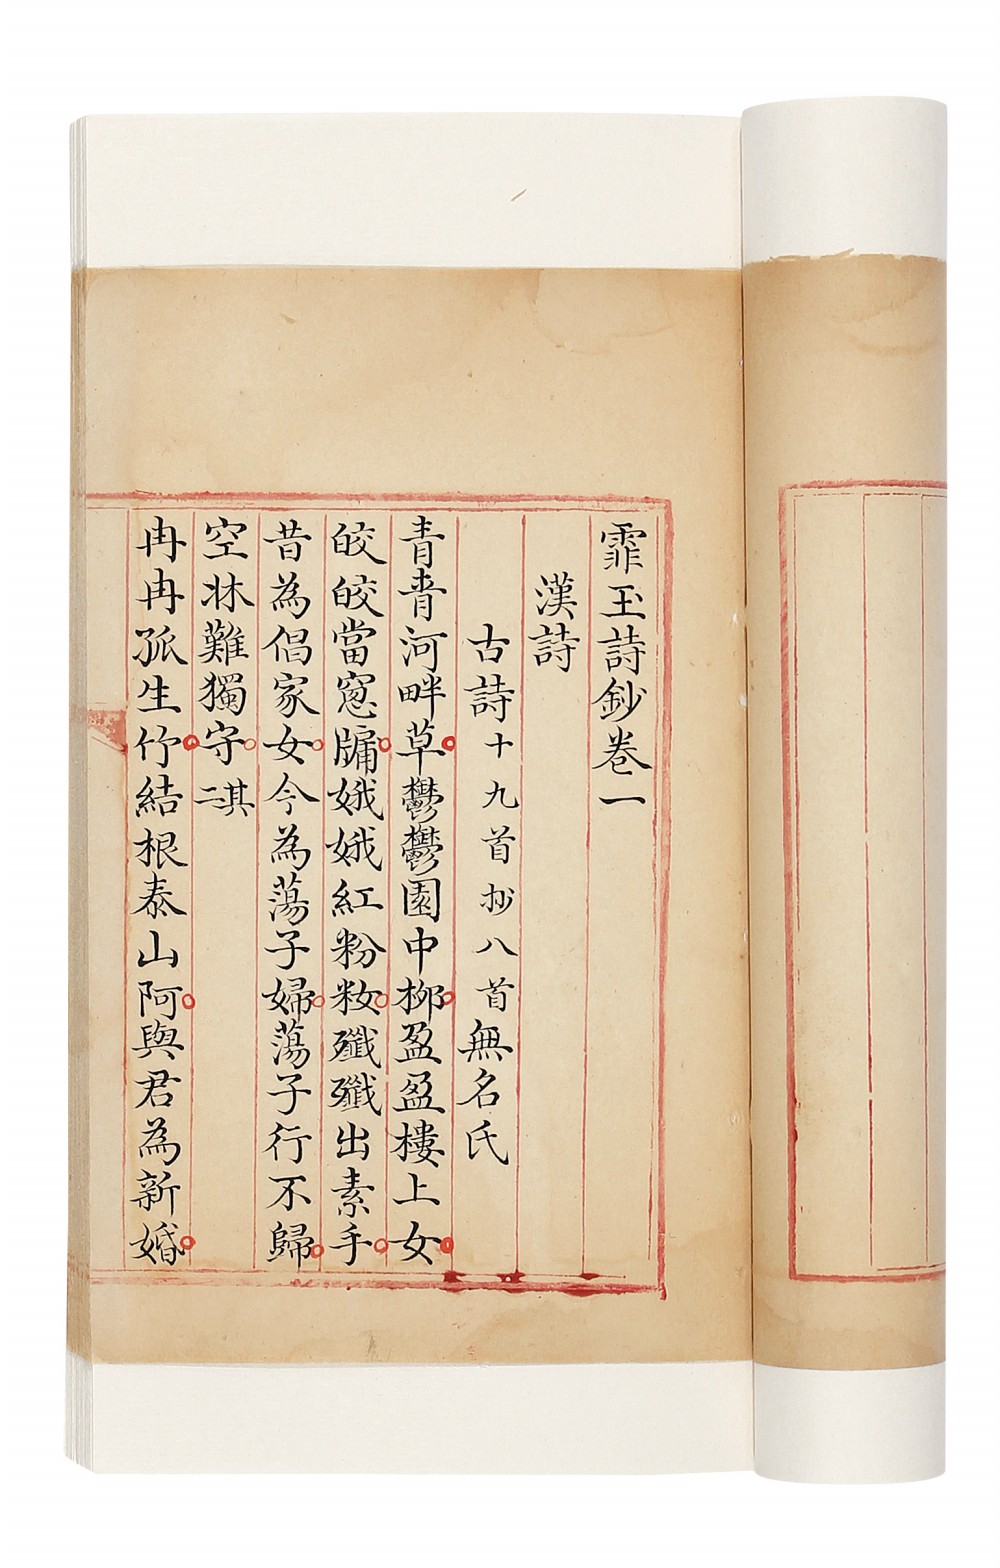 霏玉詩鈔卷一
漢詩
古詩十九首抄八首無名氏
青青河畔草鬱鬱園中柳盈盈樓上女
皎皎當窻牖娥娥紅粉妝殲殲出素手
昔為倡家女今為蕩子婦蕩子行不歸
空牀難獨守其二
冉冉孤生竹結根泰山阿與君為新婚